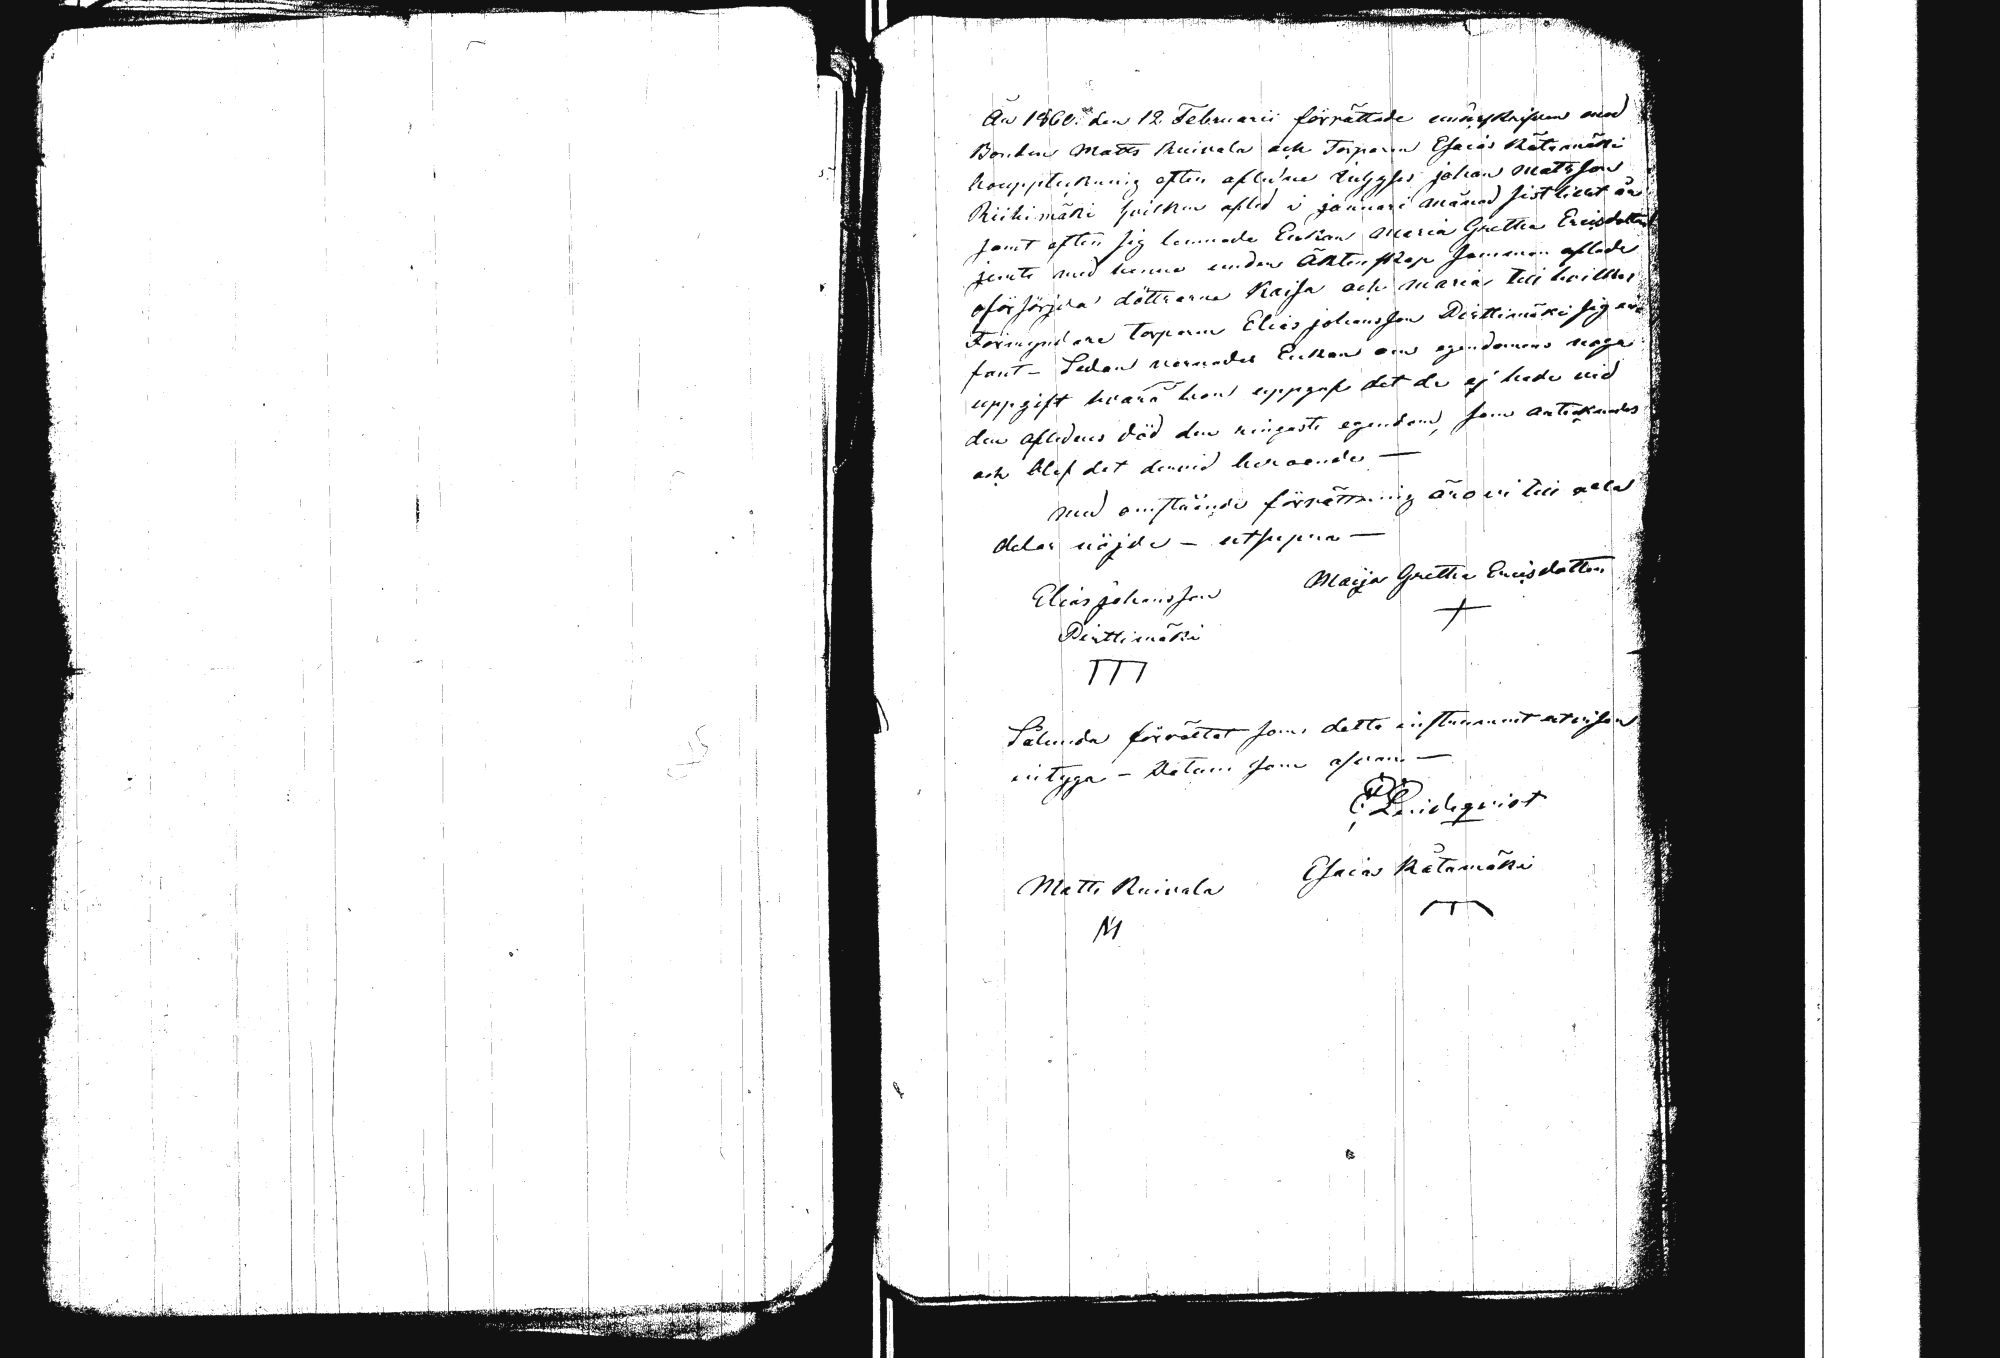 År 1860. den 12 Februarii förrättade undertecknad med
Bonden Matts Ruivala och Torparen Esaias Kätämäki
bouppteckning efter aflidne inhyses johan Matsson
Riihimäki hvilken afled i januari månad sistlidit år
samt efter sig lemnade Enkan Maria Gretha Ericsdotter
jemte med henne under Äktenskap samman aflade
oförsörjda döttrarna Kaisa och Maria till hvilkas
Förmyndare torparen Elias johansson Pirttimäki sig
fant – Sedan varnades Enkan om egendomens noga
uppgift hvarå hon uppgaf det de ej hade vid
den aflednes död den ringaste egendom, som antecknades
och blef det dervid beroende —
Med omstående förrättning äro vi till alla
delar nöjda – utsupra —
Elias johansson
Pirttimäki
Maija Gretha Ericsdotter
Sålunda förrättat som detta instrument utvisar
intyga – Datum som ofvan —
Lindeqvist
Matts Ruivala
Esaias Kätämäki
M